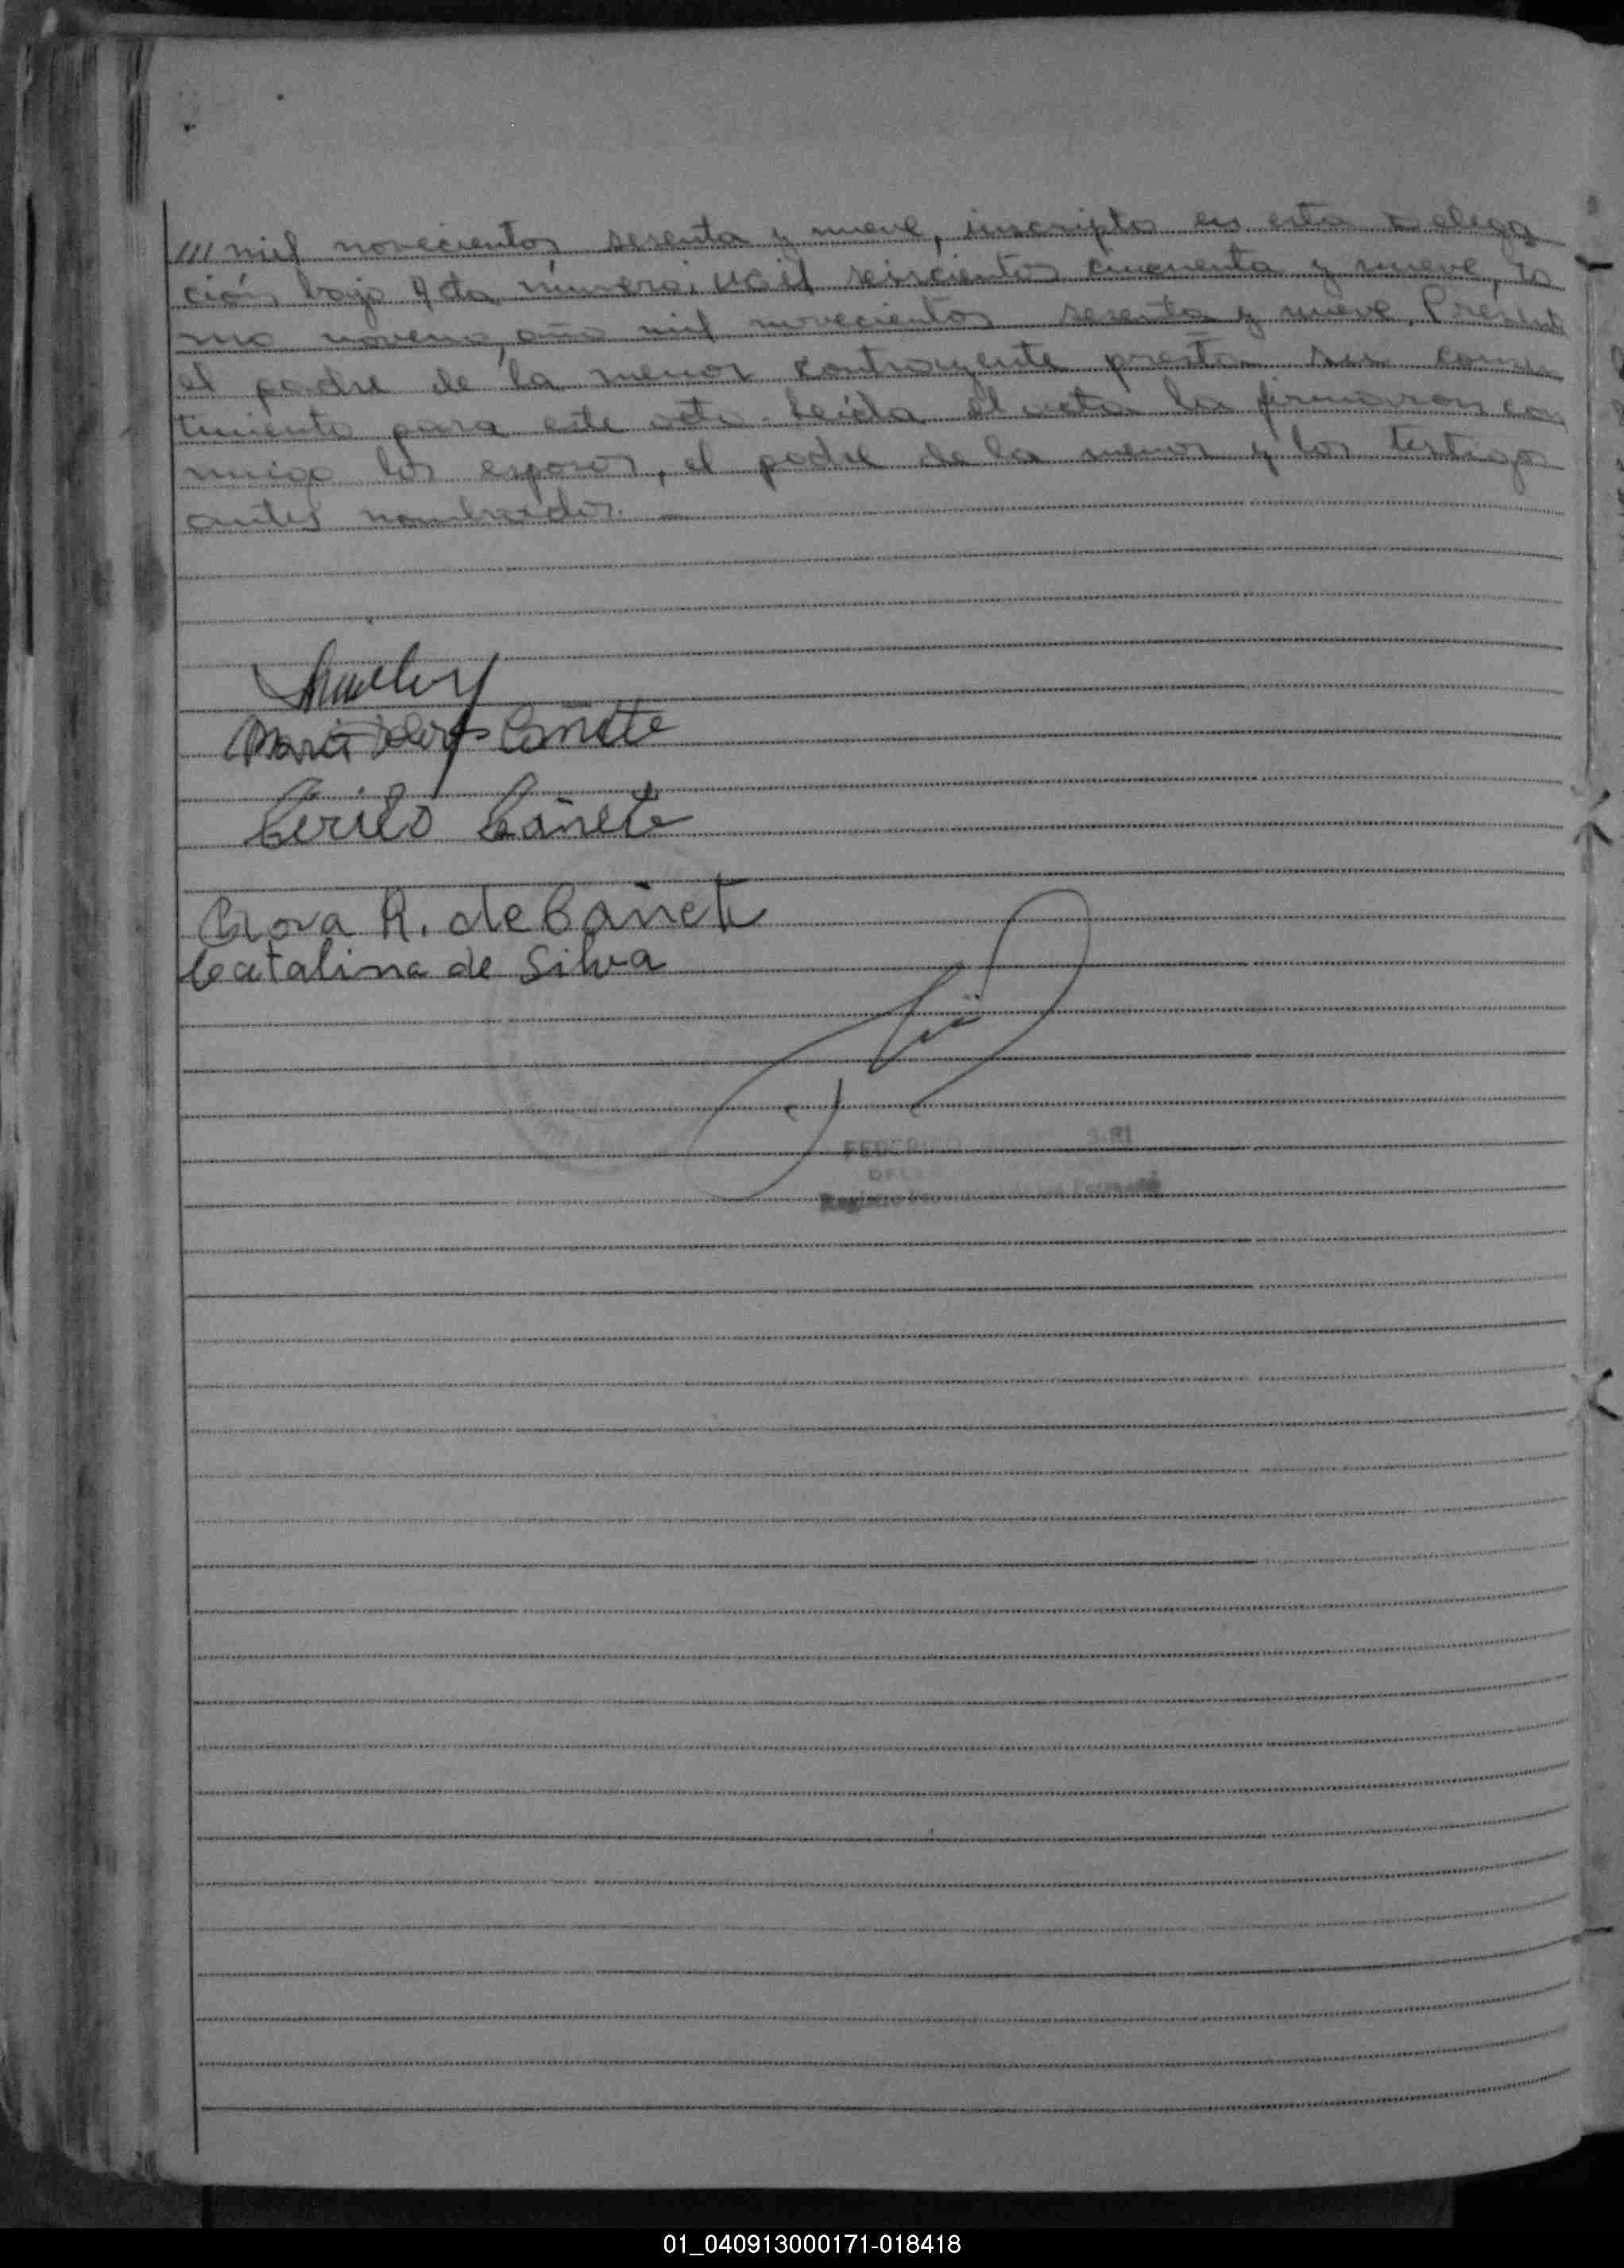 /// mil novecientos sesenta y nueve, inscripto en esta Delega
ción bajo Acta número: Mil seiscientos cincuenta y nueve, to
mo noveno, año mil novecientos sesenta y nueve. Presente
el padre de la menor contrayente presta su consen
timiento para este acto. Leída el acta la firmaron con
migo los esposos, el padre de la menor y los testigos
antes nombrados. —
Cañete
Cirilo Cañete
R. de Cañete
Catalina de Silva
FEDERICO
Registro
01_040913000171-018418